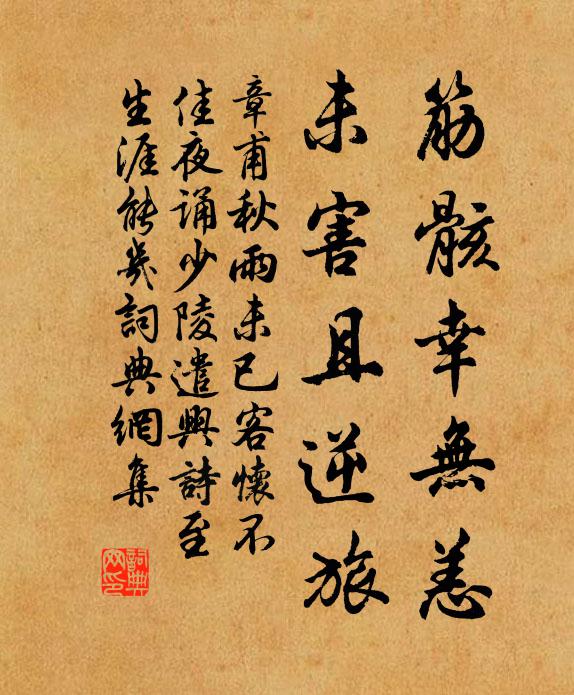 筋骸幸無恙
未害且逆旅
章甫秋雨未已客懷不
佳夜誦少陵遣興詩至
生涯能幾詞典網集
詞典網印